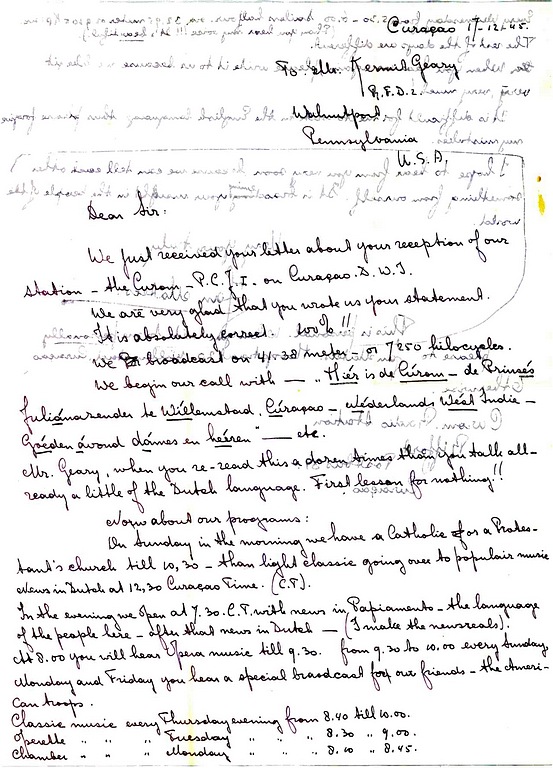 Curaçao 17-12-45.
To: Mr. Kermit Geary
R.F.D.2.
Walnutport
Pennsylvania
U.S.A.
Dear Sir:
We just received your letter about your reception of our
station – the Curom – P.C.J.I. on Curaçao. D.W.I.
We are very glad that you wrote us your statement.
It is absolutely correct. 100%!!
We broadcast on 41.38 meter – or 7250 kilocycles.
We begin our call with – „Hiér is de Cúrom – de Prinsés
Juliánarender te Wíllemstad, Cúraçao – Néderlands Wést Indie –
Goéden ávond dámes en heéren" – etc.
Mr. Geary, when you re-read this a dozen times then you talk all-
ready a little of the Dutch language. First lesson for nothing!!
Now about our programs:
On Sunday in the morning we have a Catholic or a Protes-
tant's church till 10,30 – than light classic going over to populair music
News in Dutch at 12,30 Curaçao Time. (C.T.).
In the evening we open at 7.30. C.T. with news in Papiamento – the language
of the people here – after that news in Dutch – (I make the newsreals).
At 8.00 you will hear Opera music till 9.30. from 9.30 to 10.00 every Sunday,
Monday and Friday you hear a special broadcast for our friends – the Ameri-
can troops.
Classic music every Thursday evening from 8.40 till 10.00.
Operette " " Tuesday " " 8.30 " 9.00.
Chamber " " Monday " " 8.10 " 8.45.